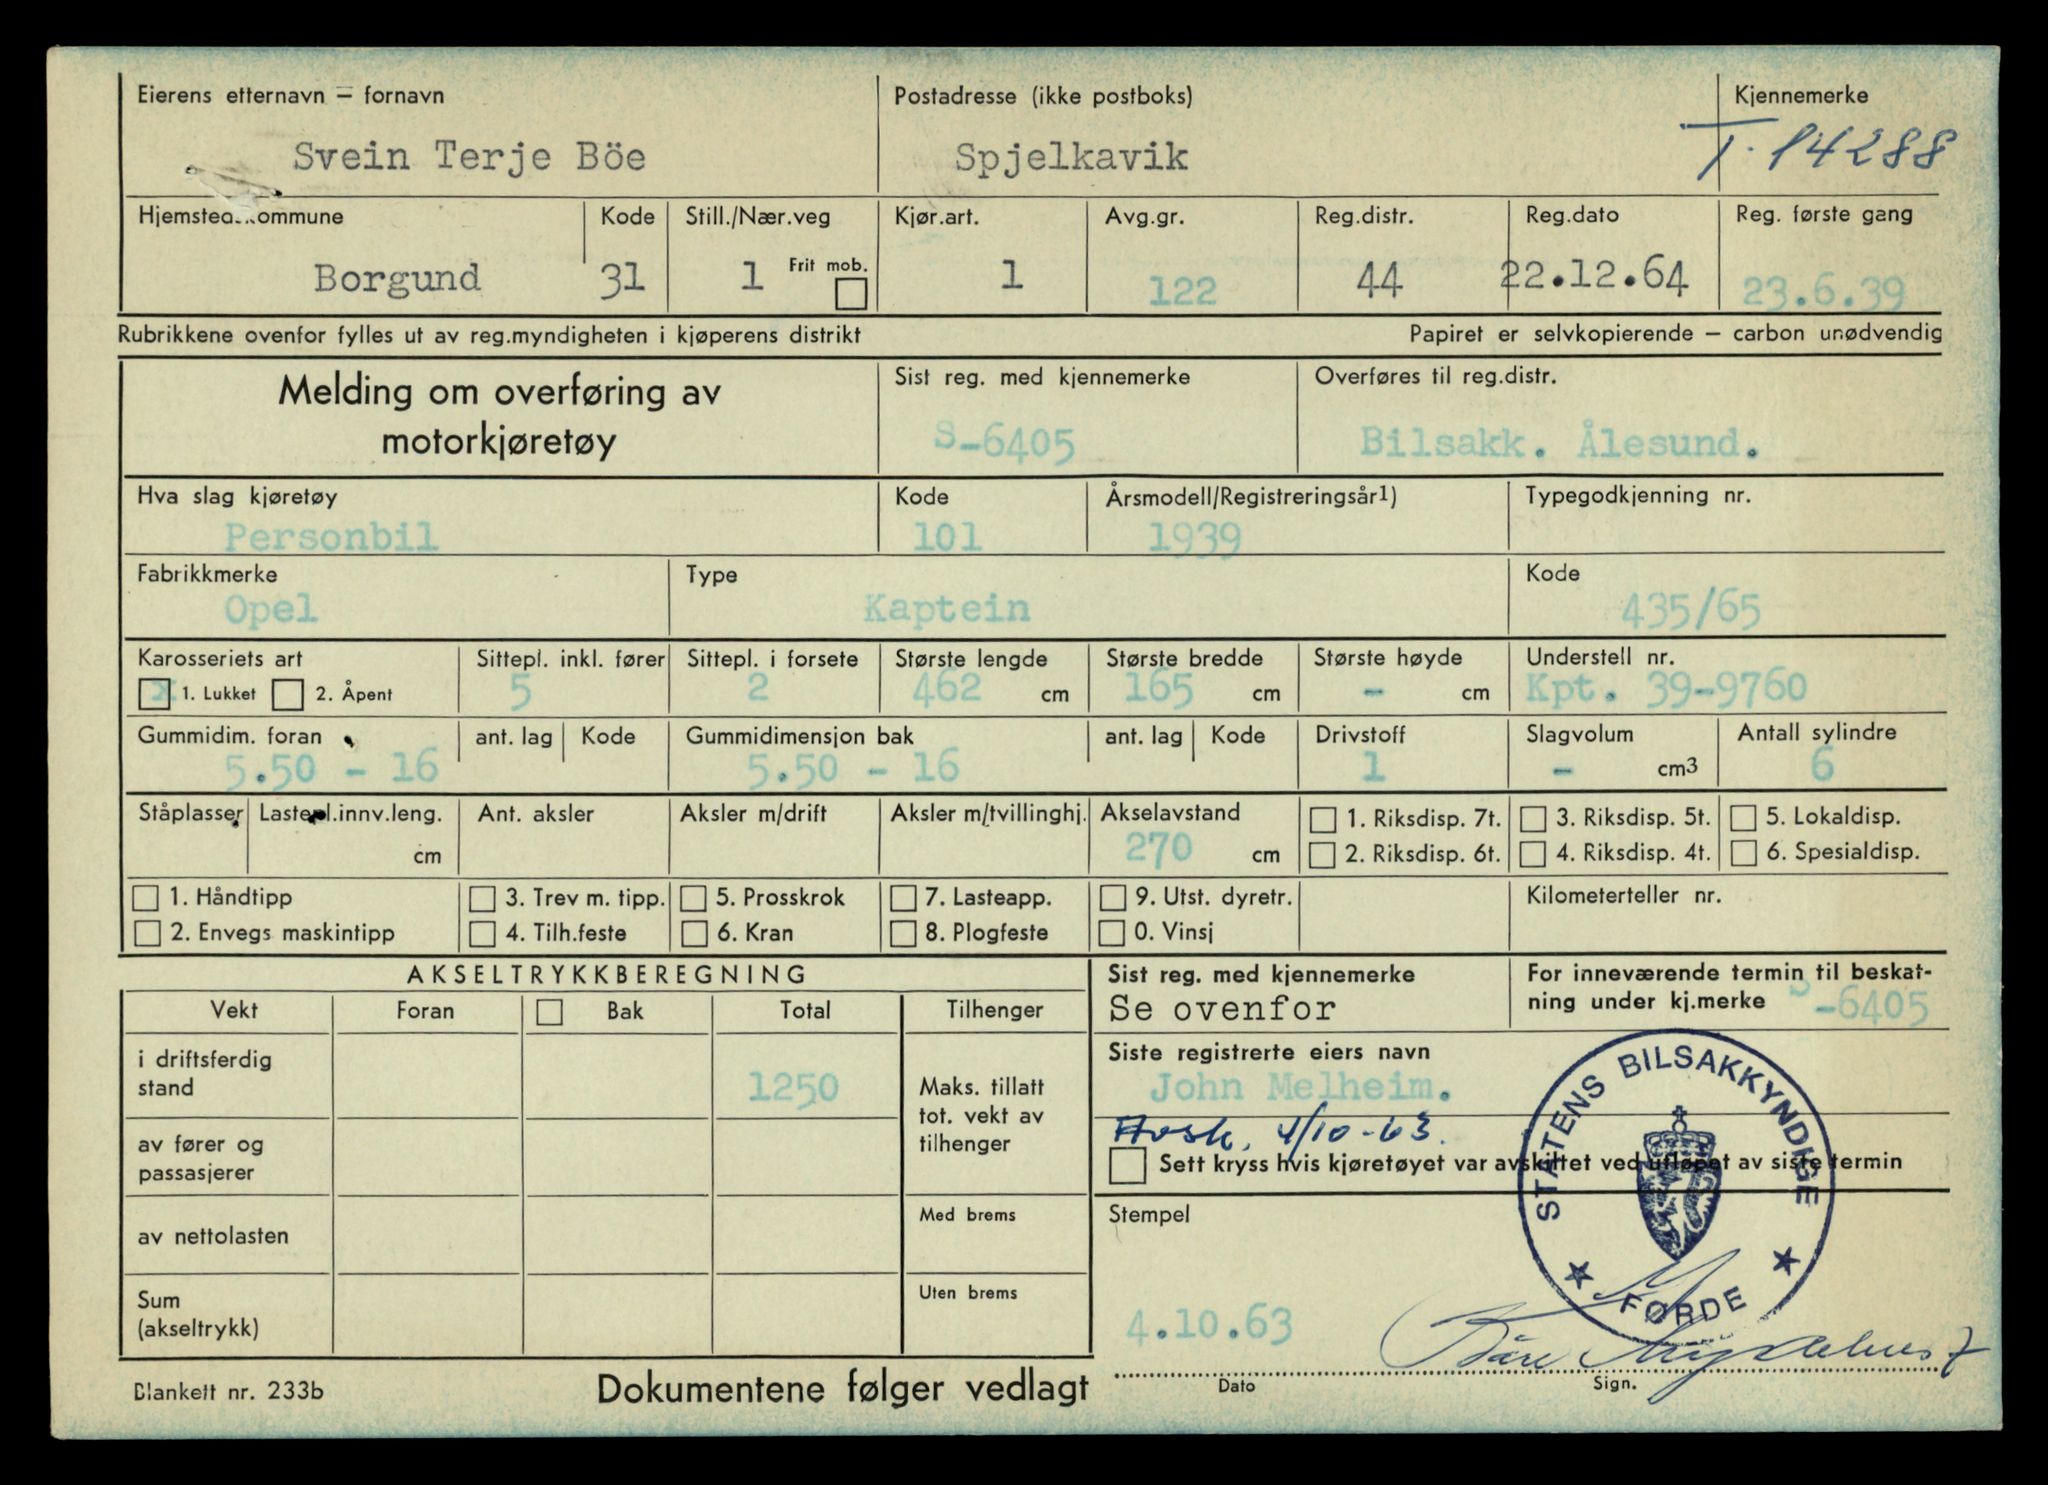 Eierens etternavn – fornavn Postadresse (ikke postboks) Kjennemerke
Svein Terje Böe Spjelkavik T-14288
Hjemstedskommune Kode Still./Nær.veg Kjør.art. Avg.gr. Reg.distr. Reg.dato Reg. første gang
Borgund 31 1 Frit mob. 1 122 44 22.12.64 23.6.39
Rubrikkene ovenfor fylles ut av reg.myndigheten i kjøperens distrikt Papiret er selvkopierende – carbon unødvendig
Melding om overføring av Sist reg. med kjennemerke Overføres til reg.distr.
motorkjøretøy S-6405 Bilsakk. Ålesund.
Hva slag kjøretøy Kode Årsmodell/Registreringsår1) Typegodkjenning nr.
Personbil 101 1939
Fabrikkmerke Type Kode
Opel Kaptein 435/65
Karosseriets art Sittepl. inkl. fører Sittepl. i forsete Største lengde Største bredde Største høyde Understell nr.
x 1. Lukket 2. Åpent 5 2 462 cm 165 cm - cm Kpt. 39-9760
Gummidim. foran ant. lag Kode Gummidimensjon bak ant. lag Kode Drivstoff Slagvolum Antall sylindre
5.50 - 16 5.50 - 16 1 - cm3 6
Ståplasser Lastepl.innv.leng. Ant. aksler Aksler m/drift Aksler m/tvillinghj. Akselavstand 1. Riksdisp. 7t. 3. Riksdisp. 5t. 5. Lokaldisp.
cm 270 cm 2. Riksdisp. 6t. 4. Riksdisp. 4t. 6. Spesialdisp.
1. Håndtipp 3. Trev m. tipp. 5. Prosskrok 7. Lasteapp. 9. Utst. dyretr. Kilometerteller nr.
2. Envegs maskintipp 4. Tilh.feste 6. Kran 8. Plogfeste 0. Vinsj
AKSELTRYKKBEREGNING Sist reg. med kjennemerke For inneværende termin til beskat-
Vekt Foran Bak Total Tilhenger Se ovenfor ning under kj.merke S-6405
i driftsferdig Siste registrerte eiers navn
stand 1250 Maks. tillatt John Melheim.
tot. vekt av
av fører og tilhenger Avsk. 4/10-63.
passasjerer Sett kryss hvis kjøretøyet var avskiltet ved utløpet av siste termin
av nettolasten Med brems Stempel
STATENS BILSAKKYNDIGE
FØRDE
Sum Uten brems
(akseltrykk) 4.10.63
Dato Sign.
Blankett nr. 233b Dokumentene følger vedlagt